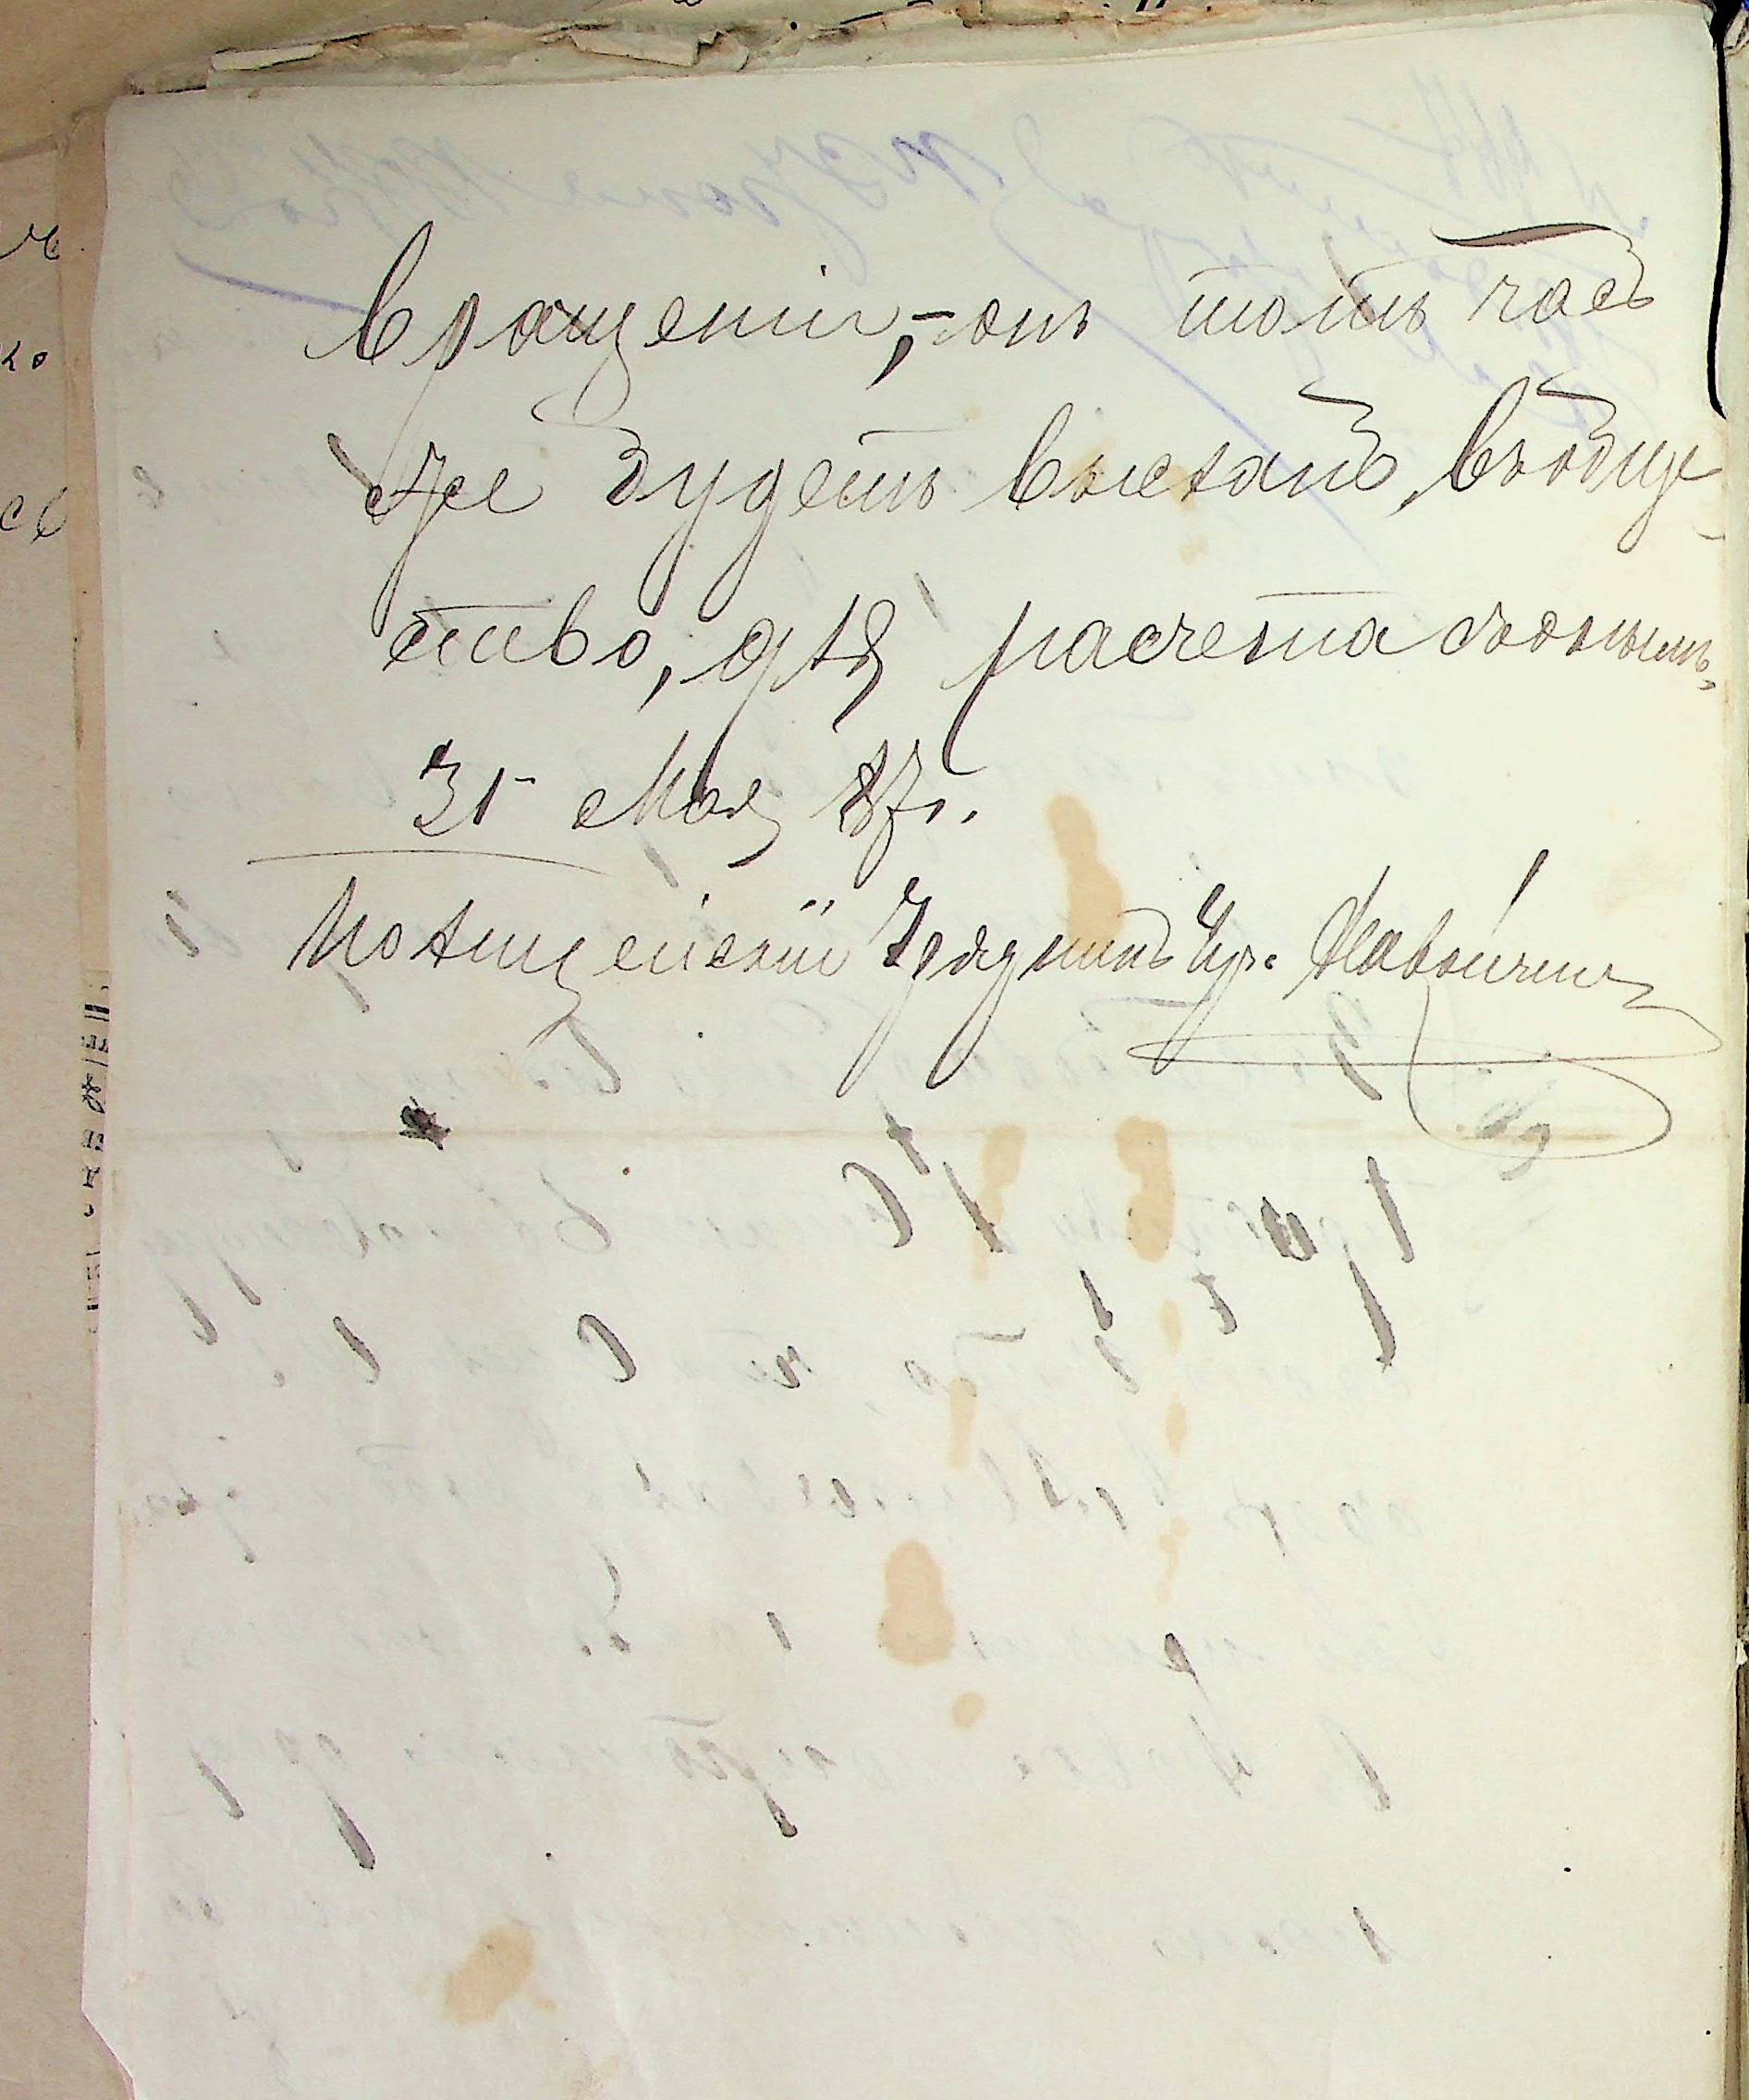 вращеніи, – онъ тотъ часъ
же будетъ высланъ, въ обще-
ство, для расчета съ онымъ,
31 Мая 87 г.
Полицейскій Урядникъ